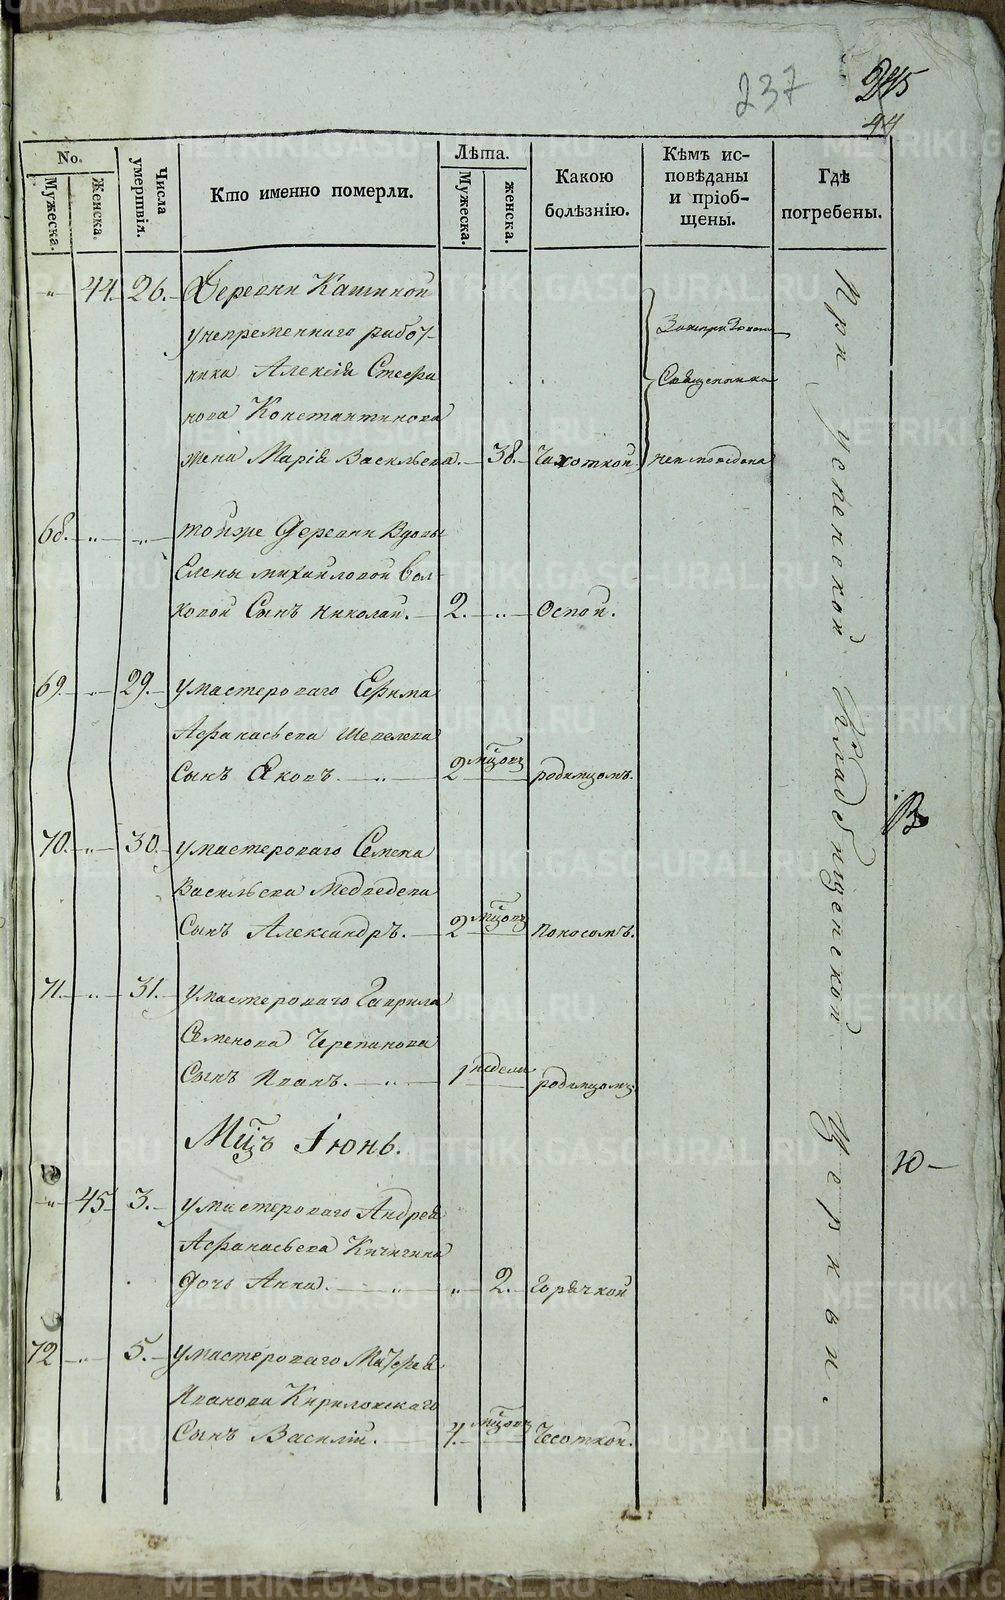 237
245
44
No.
Мужеска.
Женска.
Числа умертвiл.
Кто именно померли.
Лѣта.
Мужеска.
женска.
Какою болѣзнiю.
Кѣмъ исповѣданы и прiобщены.
Гдѣ погребены.
" 44. 26. Деревни Кашиной
у непременнаго работ-
ника Алексiя Стефа
нова Константинова
жена Марiя Васильева. 38. Чахоткой
Священника
При Успенской Кладбищенской Церкви.
68. " " тойже деревни Вдовы
Елены михайловой Вол-
ковой Сынъ Николай. 2. " Оспой.
69. " 29. у мастероваго Ефима
Афанасьева Шепелева
Сынъ Яковъ. " 2 мцовъ родимцомъ.
В
70. " 30. у мастероваго Семена
Васильева Медведева
Сынъ Александръ. 2 мцовъ Поносомъ.
71. " 31. у мастероваго Гаврила
Семенова Черепанова
Сынъ Иванъ. " 1 недели родимцомъ
Мцъ Iюнь.
Ю
" 45 3. у мастероваго Андрея
Афанасьева Кичигина
дочь Анна. " " 2. Горячкой
72 " 5. у мастероваго Матфея
Иванова Кириловскаго
Сынъ Василiй. 4. мцовъ Чесоткой.
METRIKI.GASO-URAL.RU